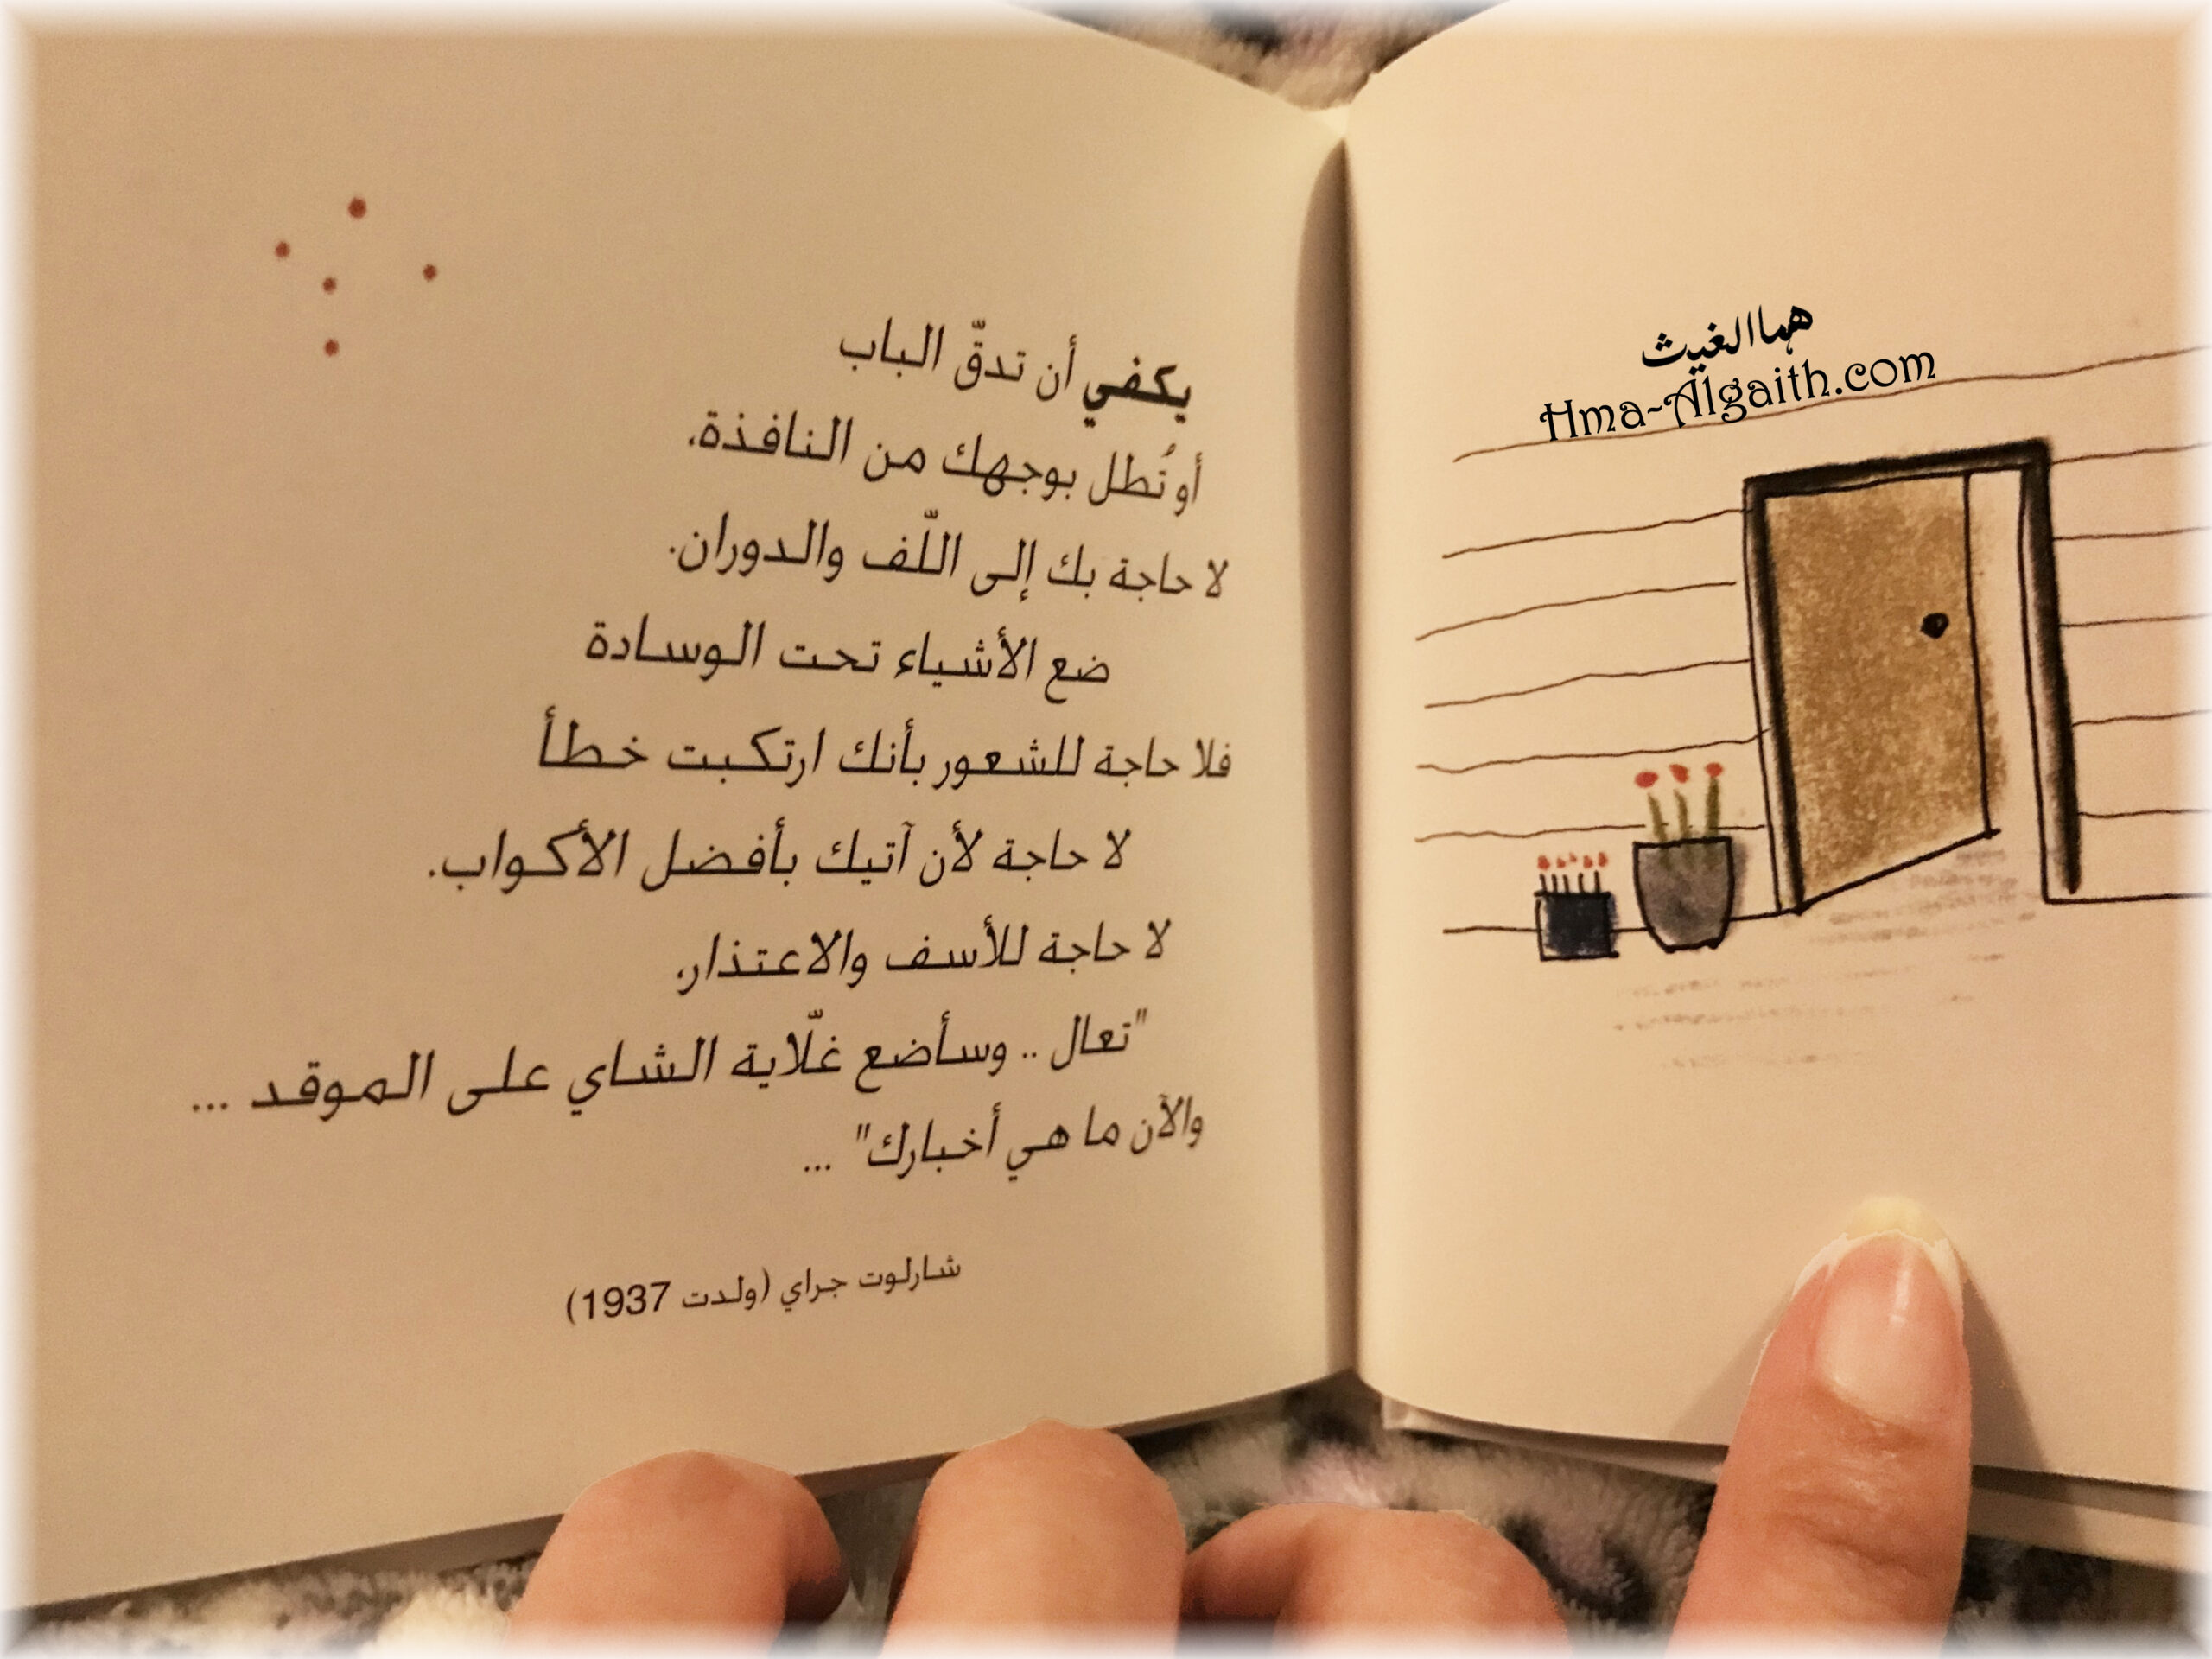 يكفي أن تدقّ الباب
أو تُطل بوجهك من النافذة،
لا حاجة بك إلى اللّف والدوران.
ضع الأشياء تحت الوسادة
فلا حاجة للشعور بأنك ارتكبت خطأ
لا حاجة لأن آتيك بأفضل الأكواب.
لا حاجة للأسف والاعتذار،
"تعال .. وسأضع غلّاية الشاي على الموقد ...
والآن ما هي أخبارك" ...
شارلوت جراي (ولدت 1937)
هما الغيث
Hma-Algaith.com